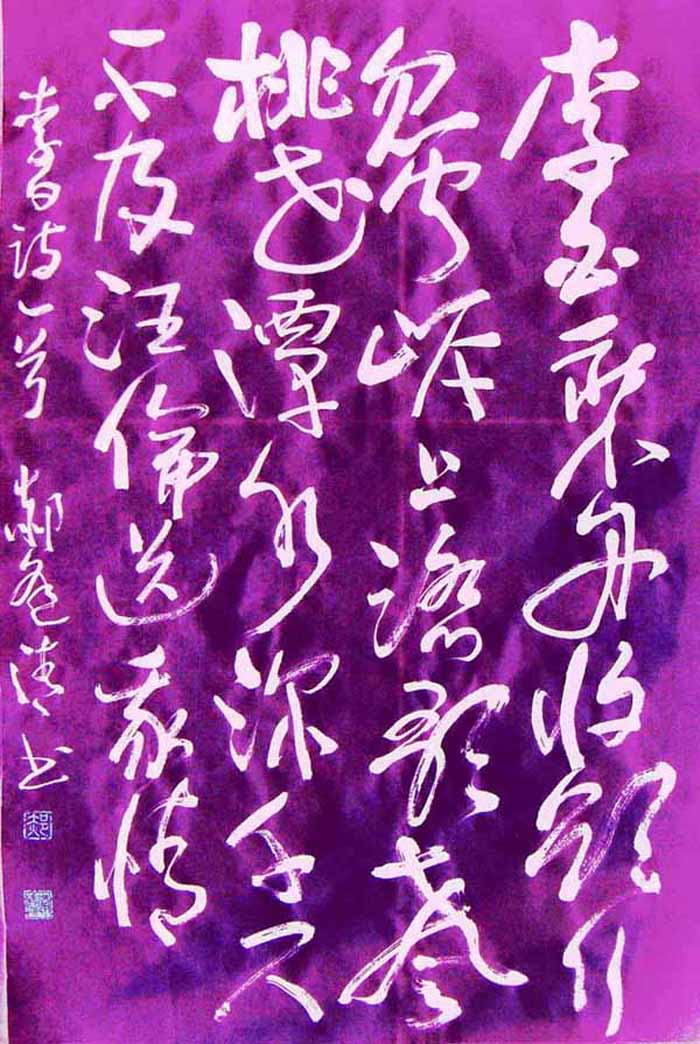 李白乘舟将欲行
忽闻岸上踏歌聲
桃花潭水深千尺
不及汪倫送我情
李白诗一首 郝清书